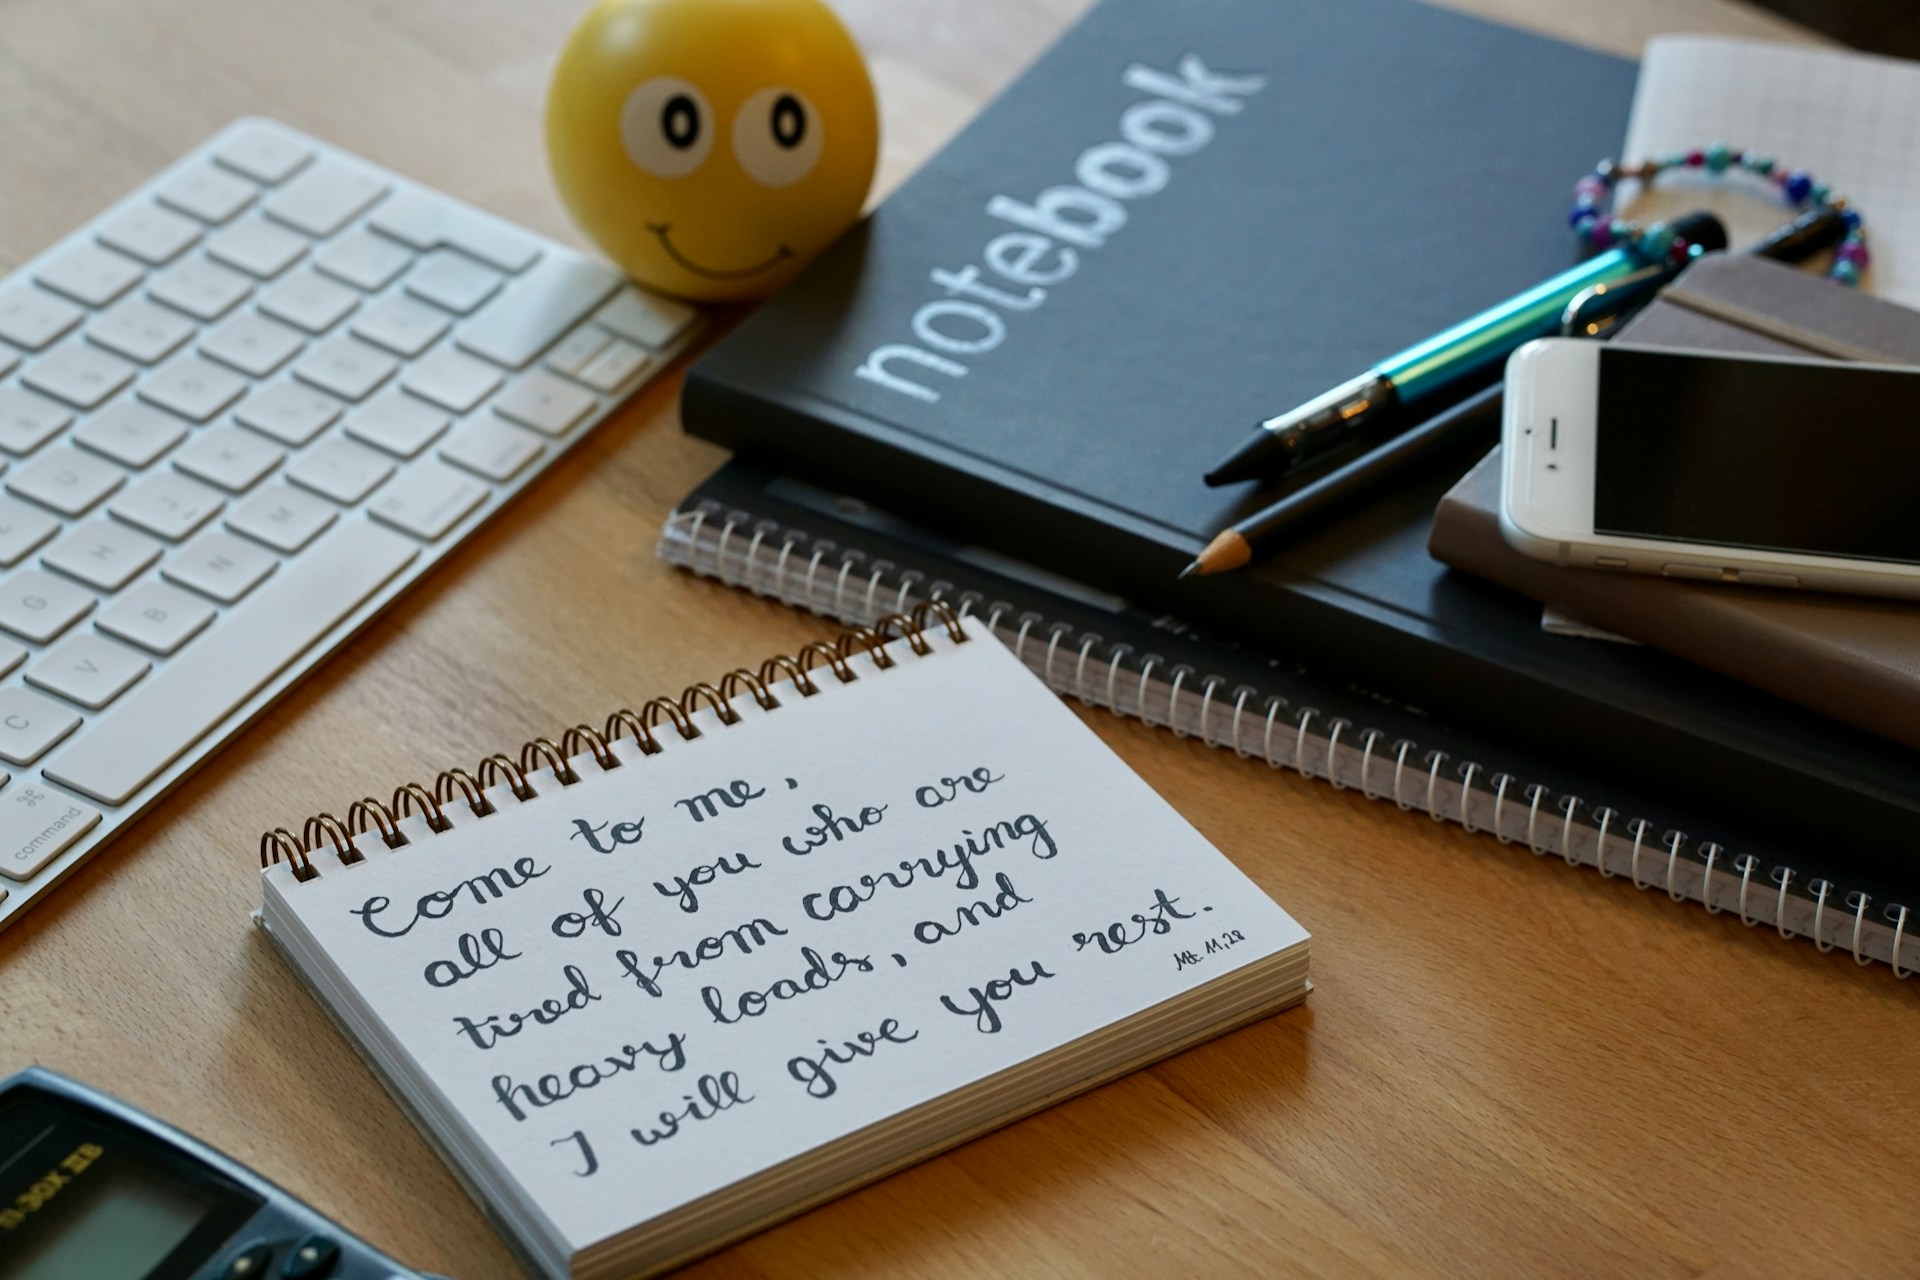 notebook
Come to me,
all of you who are
tired from carrying
heavy loads, and
I will give you rest.
Mt. 11,28
H
N
M
G
B
V
C
⌘
command
TI-30X IIB